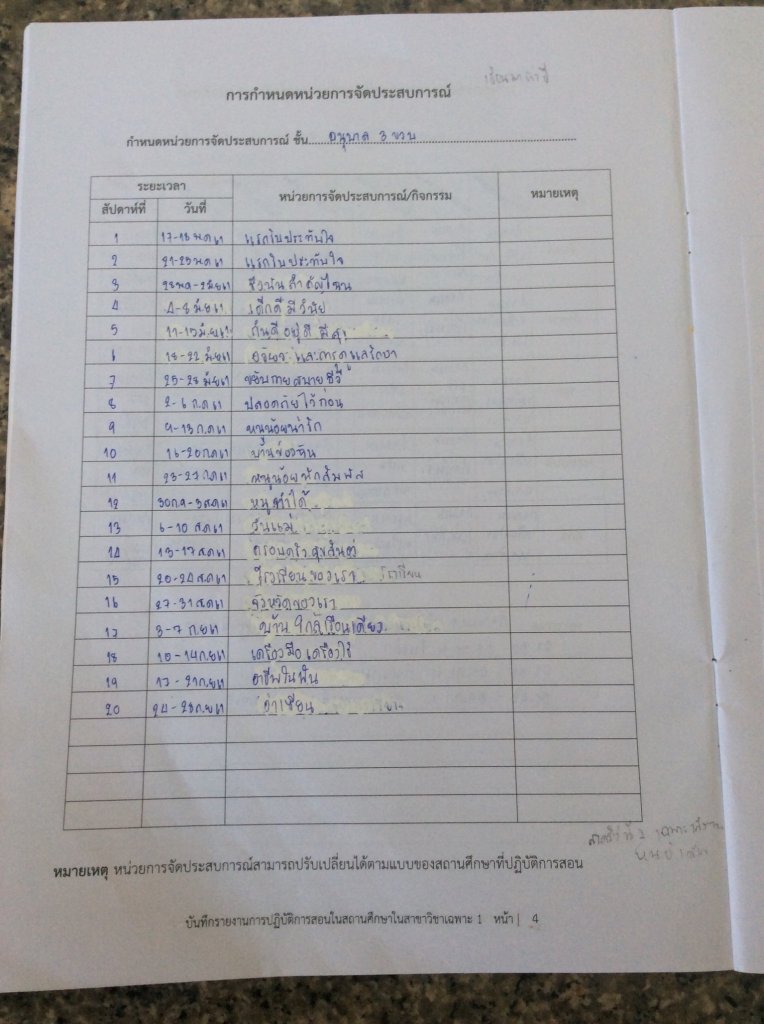 การกำหนดหน่วยการจัดประสบการณ์
กำหนดหน่วยการจัดประสบการณ์ ชั้น อนุบาล 3 ขวบ
ระยะเวลา หน่วยการจัดประสบการณ์/กิจกรรม หมายเหตุ
สัปดาห์ที่ วันที่
1 17-18 พ.ค 61 แรกรับประทับใจ
2 21-25 พค 61 แรกรับประทับใจ
3 28 พค-1 มิย 61 สำคัญไฉน
4 4-8 มิย 61 เด็กดีมีวินัย
5 11-15 มิย 61 กินดี อยู่ดี มีสุข
6 18-22 มิย 61 อวัยวะ และการดูแลรักษา
7 25-29 มิย 61 ขยับกายสบายชีวี
8 2-6 ก.ค 61 ปลอดภัยไว้ก่อน
9 9-13 ก.ค 61 หนูน้อยน่ารัก
10 16-20 กค 61 บ้านของฉัน
11 23-27 กค 61 หนูน้อยนักสัมผัส
12 30 กค-3 สค 61 หนูทำได้
13 6-10 สค 61 วันแม่
14 13-17 สค 61 ครอบครัวสุขสันต์
15 20-24 สค 61 โรงเรียนของเรา
16 27-31 สค 61 จังหวัดของเรา
17 3-7 กย 61 บ้านใกล้เรือนเคียง
18 10-14 กย 61 เครื่องมือ เครื่องใช้
19 17-21 กย 61 อาชีพในฝัน
20 24-28 กย 61 อาเซียน
หมายเหตุ หน่วยการจัดประสบการณ์สามารถปรับเปลี่ยนได้ตามแบบของสถานศึกษาที่ปฏิบัติการสอน
บันทึกรายงานการปฏิบัติการสอนในสถานศึกษาในสาขาวิชาเฉพาะ 1 หน้า | 4